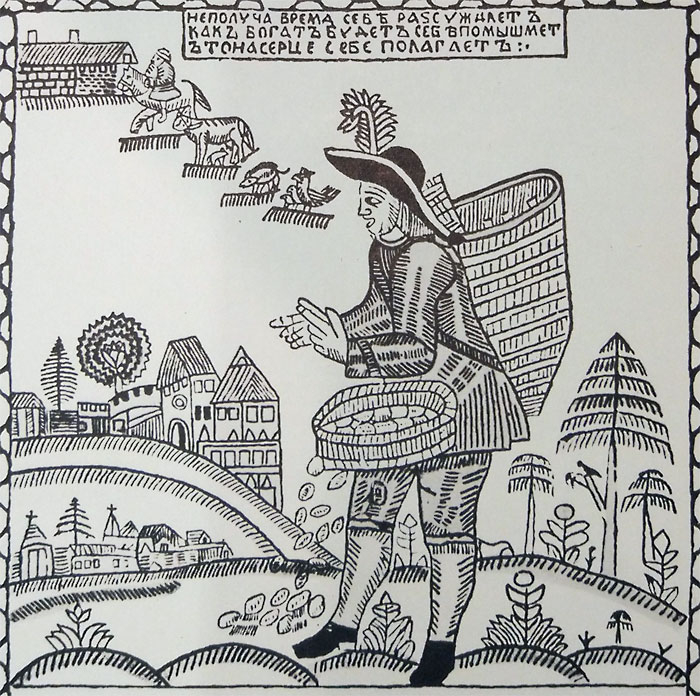 НЕПОЛУЧА ВРЕМА СЕБѢ РАЅСУЖДАЕТЪ
КАКЪ БОГАТЪ БУДЕТЪ СЕБѢ ПОМЫШЛЕТ
Ъ ТО НАСЕРЦЕ СЕБЕ ПОЛАГАЕТЪ:.